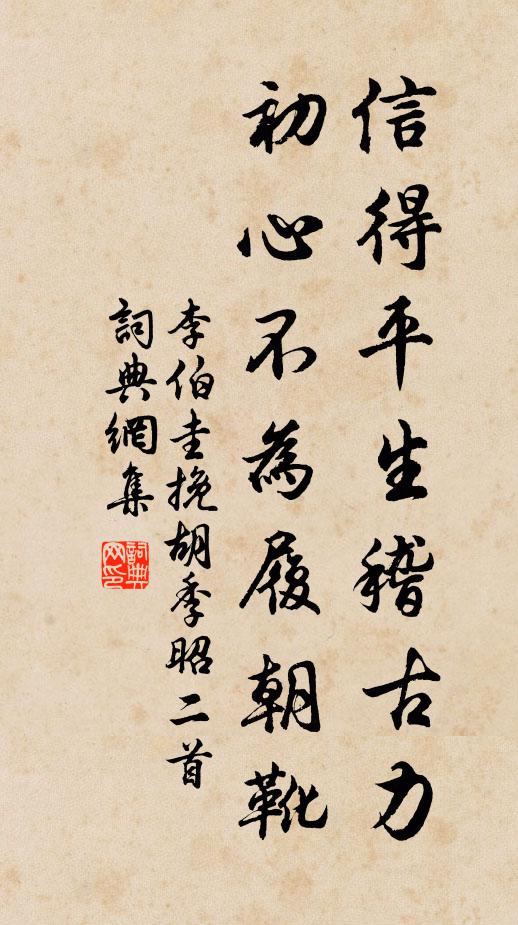 信得平生稽古力
初心不為履朝靴
李伯圭挽胡季昭二首
詞典網集
詞典網印